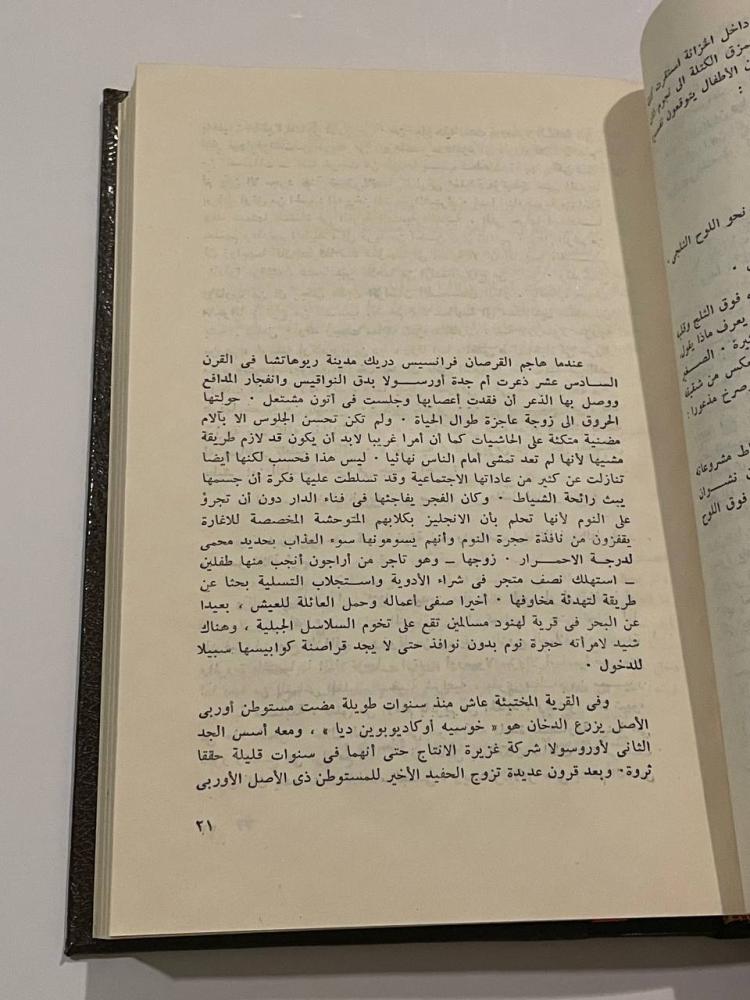 عندما هاجم القرصان فرانسيس دريك مدينة ريوهاتشا فى القرن
السادس عشر ذعرت أم جدة أورسولا بدق النواقيس وانفجار المدافع
ووصل بها الذعر أن فقدت أعصابها وجلست فى أتون مشتعل ٠ جولتها
الحروق الى زوجة عاجزة طوال الحياة ٠ ولم تكن تحسن الجلوس الا بآلام
مضنية متكئة على الحاشيات كما أن أمرا غريبا لابد أن يكون قد لازم طريقة
مشيها لأنها لم تعد تمشى أمام الناس نهائيا ٠ ليس هذا فحسب لكنها أيضا
تنازلت عن كثير من عاداتها الاجتماعية وقد تسلطت عليها فكرة أن جسمها
يبث رائحة الشياط ٠ وكان الفجر يفاجئها فى فناء الدار دون أن تجرؤ
على النوم لأنها تحلم بأن الانجليز بكلابهم المتوحشة المخصصة للاغارة
يقفزون من نافذة حجرة النوم وأنهم يسومونها سوء العذاب بحديد محمى
لدرجة الاحمرار ٠ زوجها ــ وهو تاجر من أراجون أنجب منها طفلين
ــ استهلك نصف متجر فى شراء الأدوية واستجلاب التسلية بحثا عن
طريقة لتهدئة مخاوفها ٠ أخيرا صفى أعماله وحمل العائلة للعيش ، بعيدا
عن البحر فى قرية لهنود مسالمين تقع على تخوم السلاسل الجبلية ، وهناك
شيد لامرأته حجرة نوم بدون نوافذ حتى لا يجد قراصنة كوابيسها سبيلا
للدخول ٠
وفى القرية المختبئة عاش منذ سنوات طويلة مضت مستوطن أوربى
الأصل يزرع الدخان هو « خوسيه أوكاديوبوين ديا » ، ومعه أسس الجد
الثانى لأوروسولا شركة غزيرة الانتاج حتى أنهما فى سنوات قليلة حققا
ثروة٠ وبعد قرون عديدة تزوج الحفيد الأخير للمستوطن ذى الأصل الأوربى
٢١
داخل الخزانة استقرت
الكتلة الى نجوم
الأطفال يتوقعون
:
نحو اللوح الثلجى ٠
فوق الثلج وقلب
يعرف ماذا يقول
الصمغ
عكس من شقيقه
صرخ مذعورا :
مشروعاته
نشوان
فوق اللوح